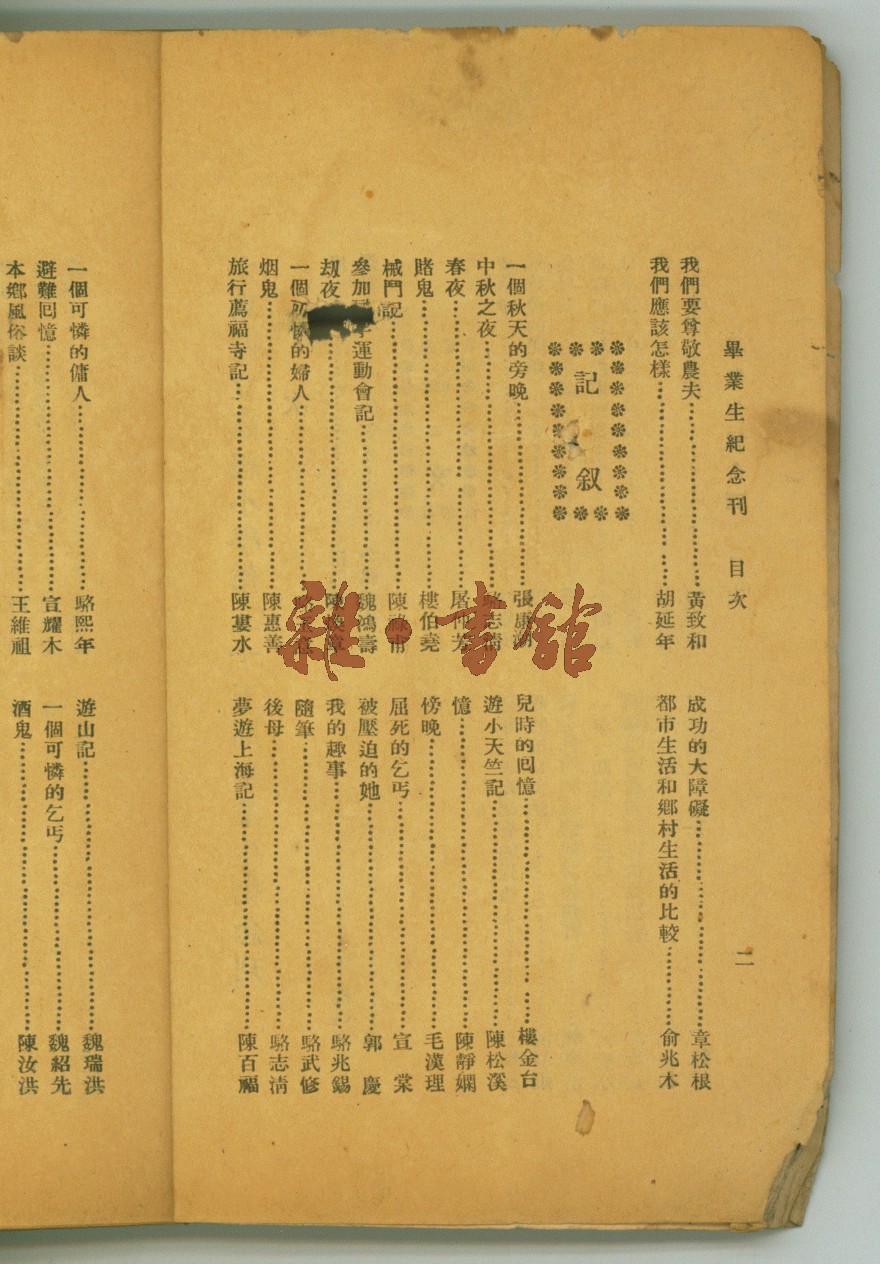 畢業生紀念刊 目次 二
我們要尊敬農夫……黃致和
成功的大障礙……章松根
我們應該怎樣……胡延年
都市生活和鄉村生活的比較……俞兆木
記 叙
一個秋天的旁晚……張康
兒時的回憶……樓金台
中秋之夜……志清
遊小天竺記……陳松溪
春夜……屠仲芳
憶……陳靜嫻
賭鬼……樓伯堯
傍晚……毛漢理
械鬥記……陳祿甫
屈死的乞丐……宣棠
參加 運動會記……魏鴻壽
被壓迫的她……郭慶
刧夜……
我的趣事……駱兆錫
一個可憐的婦人……
隨筆……駱武修
烟鬼……陳惠善
後母……駱志清
旅行薦福寺記……陳婁水
夢遊上海記……陳百福
一個可憐的傭人……駱熙年
遊山記……魏瑞洪
避難回憶……宣耀木
一個可憐的乞丐……魏紹先
本鄉風俗談……王維祖
酒鬼……陳汝洪
雜·書舘